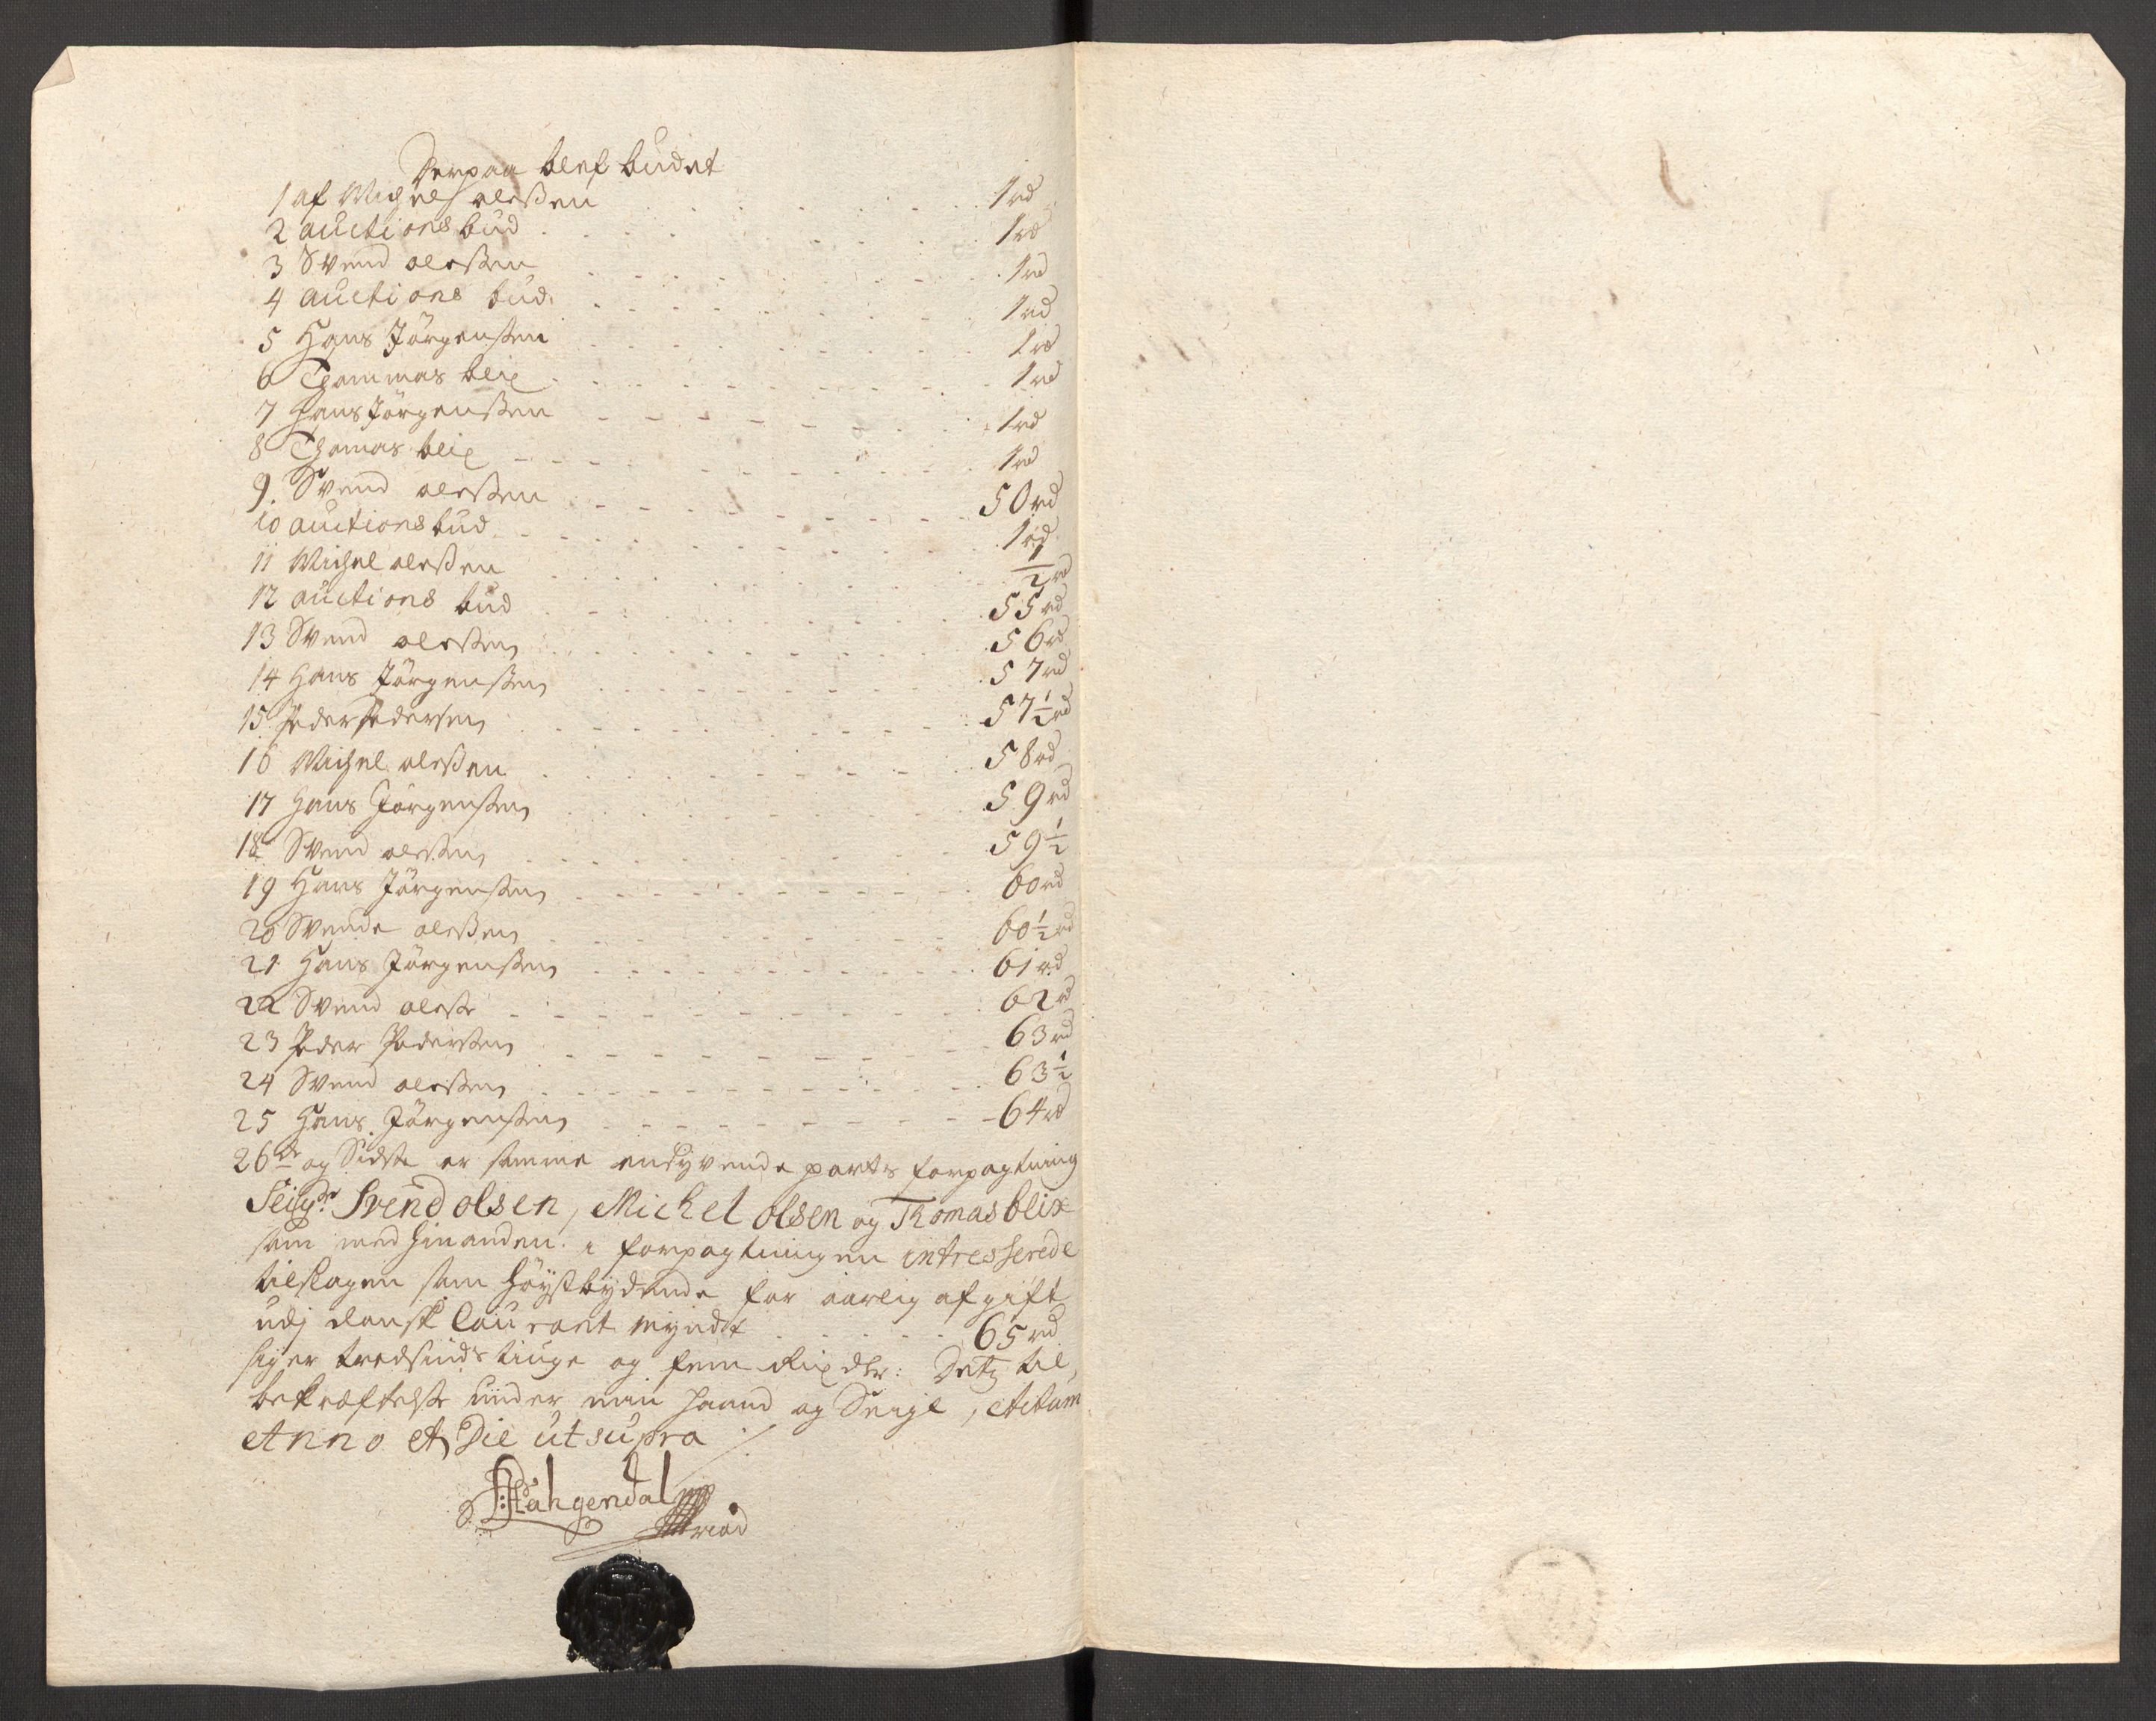 Derpaa blef budet
1 af Michel olessen . . . . 1 rd
2 auctions bud . . . . 1 rd
3 Svend olessen . . . . 1 rd
4 auctions bud . . . . 1 rd
5 Hans Jörgensen . . . . 1 rd
6 Thammas blix . . . . 1 rd
7 Hans Jörgenssen . . . . 1 rd
8 Thomas blix . . . . 1 rd
9. Svend olessen . . . . 50 rd
10 auctions bud . . . . 1 rd
11 Michel olessen . . . . 1/2 rd
12 auctions bud . . . . 55 rd
13 Svend olessen . . . . 56 rd
14 Hans Jörgenssen . . . . 57 rd
15 Peder Pedersen . . . . 57 1/2 rd
16 Michel olessen . . . . 58 rd
17 Hans Jörgensen . . . . 59 rd
18 Svend olessen . . . . 59 1/2
19 Hans Jörgenssen . . . . 60 rd
20 Svende olessen . . . . 60 1/2 rd
21 Hans Jörgenssen . . . . 61 rd
22 Svend olesse . . . . 62 rd
23 Peder Pederssen . . . . 63 rd
24 Svend olessen . . . . 63 1/2
25 Hans Jörgenssen . . . . 64 rd
26de og Sidste er samme parts forpagtning
Seigr. Svend olsen, Michel olsen og Thomas blix
som med hinanden i forpagtningen intresserede
tilslagen som höystbydende for aarlig afgift
udj dansk Courant Myndt . . . . 65 rd
siger tredsinds tiuge og fem Rixdlr: Detz til
bekræftelse under min haand og Seigl, Actum
Anno et Die ut supra